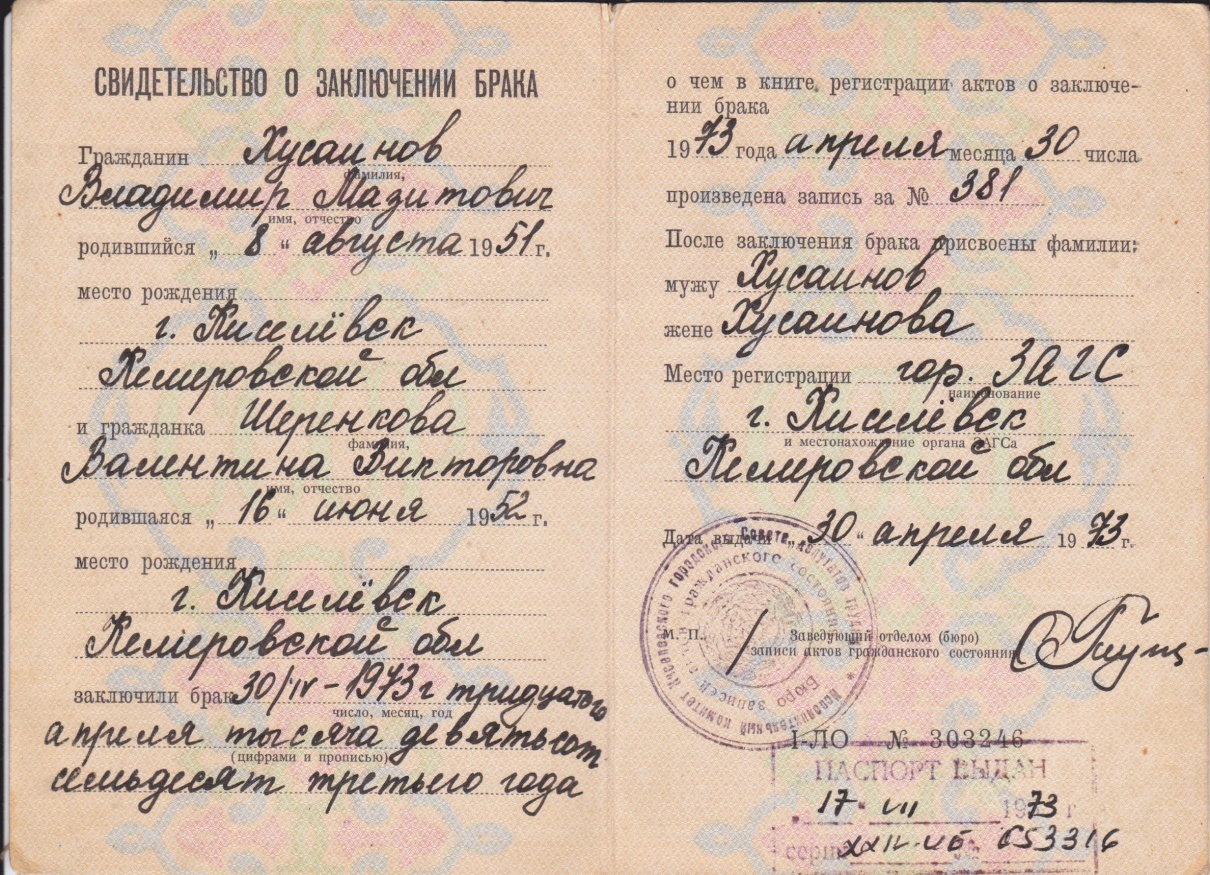 СВИДЕТЕЛЬСТВО О ЗАКЛЮЧЕНИИ БРАКА
Гражданин Хусаинов
фамилия,
Владимир Мазитович
имя, отчество
родившийся „ 8 “ августа 1951 г.
место рождения
г. Киселёвск
Кемеровской обл
и гражданка Шеренкова
фамилия,
Валентина Викторовна
имя, отчество
родившаяся „ 16 “ июня 1952 г.
место рождения
г. Киселёвск
Кемеровской обл
заключили брак 30/IV – 1973 г тридцатого
число, месяц, год
апреля тысяча девятьсот
(цифрами и прописью)
семьдесят третьего года
о чем в книге регистрации актов о заключе-
нии брака
1973 года апреля месяца 30 числа
произведена запись за № 381
После заключения брака присвоены фамилии:
мужу Хусаинов
жене Хусаинова
Место регистрации гор. ЗАГС
наименование
г. Киселёвск
и местонахождение органа ЗАГСа
Кемеровской обл
Дата выдачи „ 30 “ апреля 1973 г.
М. П.
Заведующий отделом (бюро)
записи актов гражданского состояния
I-ЛО № 303246
ПАСПОРТ ВЫДАН
17 “ VII 1973 г
серия № 653316